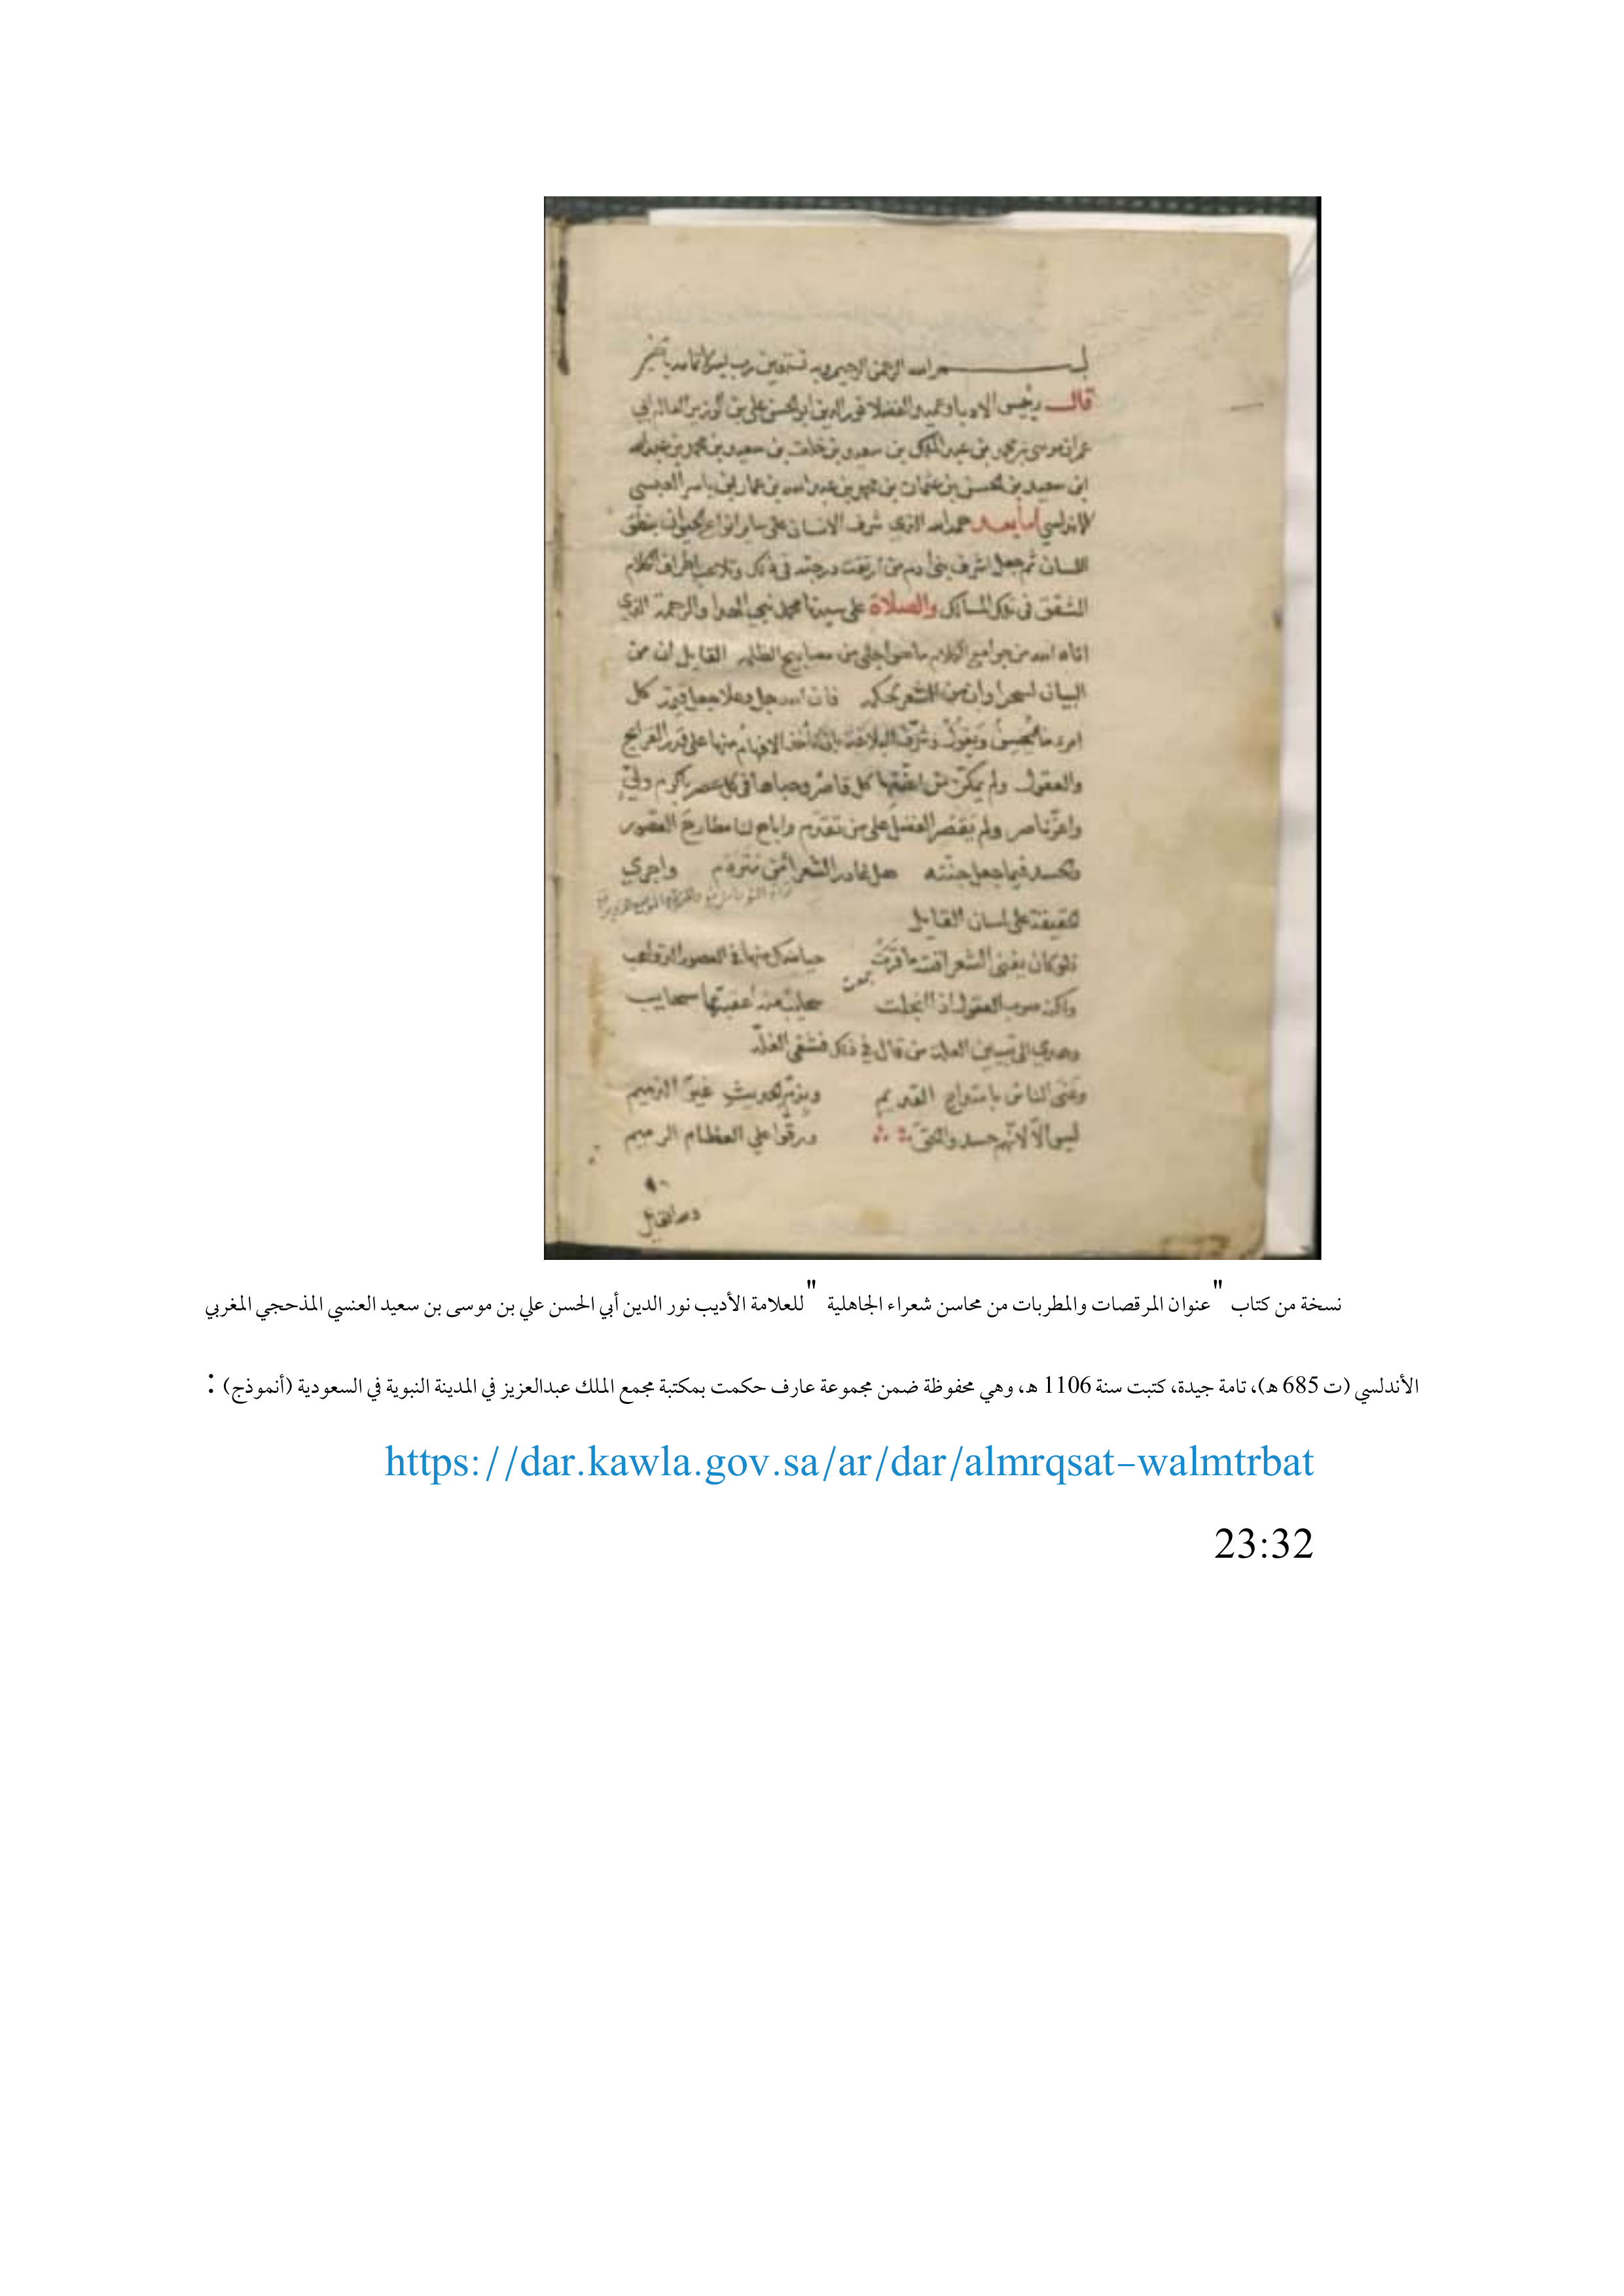 بسم الله الرحمن الرحيم وبه نستعين رب يسر
قال رئيس الادبا وعميد الفضلا نور الدين ابو الحسن علي بن الوزير العالم ابي
عمران موسى بن محمد بن عبد الملك بن سعيد بن خلف بن سعيد بن محمد بن عبد الله
ابن سعيد بن الحسن بن عثمان بن بن عبد الله بن عمار بن ياسر العبسي
الاندلسي اما بعد حمد الله الذي شرف الانسان على ساير انواع الحيوان بنطق
اللسان ثم جعل اشرف بني ادم من ارتفعت درجته في ذلك وتلاعب باطراف الكلام
المشقق في تلك المسالك والصلاة على سيدنا محمد نبي الهدا والرحمة الذي
اتاه الله من جوامع الكلام ما هو اجلى من مصابيح الظلم القايل ان من
البيان لسحرا وان من الشعر لحكم فان الله جل وعلا جعل قيمة كل
امرء ما يحسن ويقول وشرف البلاغة بان تأخذ الافهام منها على قدر القرايح
والعقول ولم يمكن من كل قاصر وحباها في كل عصر باكرم ولي
واعز ناصر ولم يقصر الفضل على من تقدم واباح لنا مطارح العصور
فيما جعل جنته هل غادر الشعرا من متردم واجري
الحقيقة على لسان القايل
فلو كان يفنى الشعر افنته ما قرت حياضك منها في العصور الذواهب
ولكنه صوب العقول اذا انجلت سحايب منه اعقبتها سحايب
وهدي الى تبيين العلة من قال في ذلك فشفى الغلة
وعنى الناس بامتداح القديم وبذم الحديث غير الذميم
ليس الا لانهم حسدوا الحي ورقوا على العظام الرميم
ومن القايل
نسخة من كتاب "عنوان المرقصات والمطربات من محاسن شعراء الجاهلية" للعلامة الأديب نور الدين أبي الحسن علي بن موسى بن سعيد العنسي المذحجي المغربي
الأندلسي (ت 685 هـ)، تامة جيدة، كتبت سنة 1106 هـ، وهي محفوظة ضمن مجموعة عارف حكمت بمكتبة مجمع الملك عبدالعزيز في المدينة النبوية في السعودية (أنموذج) :
https://dar.kawla.gov.sa/ar/dar/almrqsat-walmtrbat
23:32